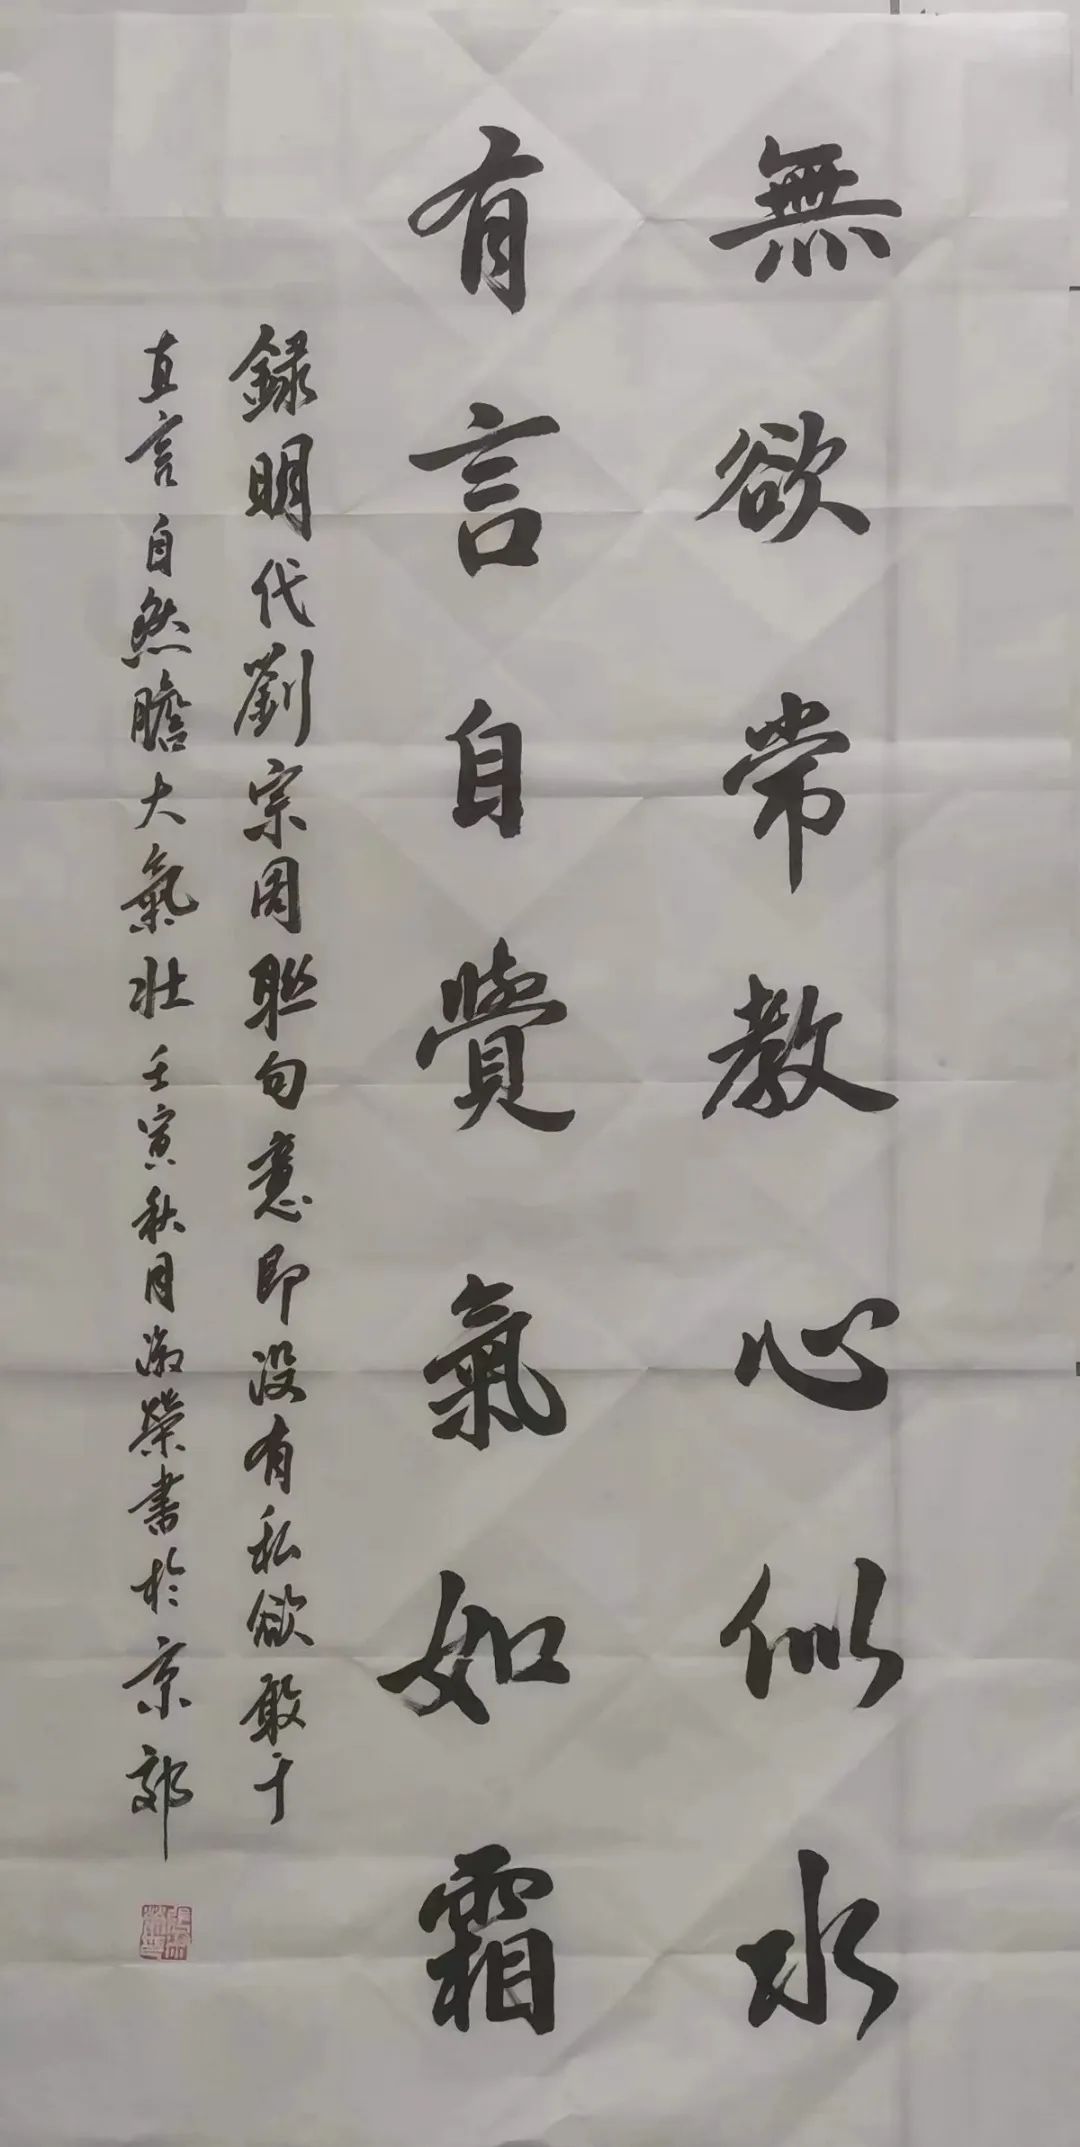 無欲常教心似水
有言自覺氣如霜
録明代劉宗周聯句意即没有私欲敢于
直言自然瞻大氣壯壬寅秋月澂榮書於京郊